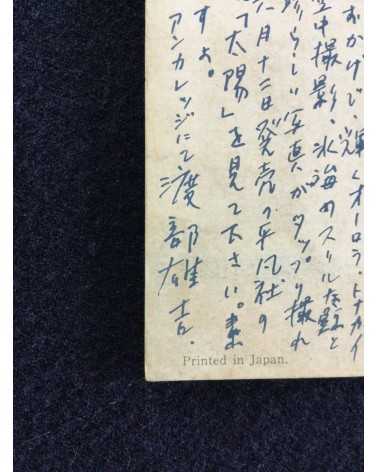 おかげで、輝くオーロラ・トナカイ
空中撮影、氷海のスリルなど
珍らしい写真がタップリ撮れ
月十二日発売の平凡社の
「太陽」を見て下さい。
すよ。
アンカレッジにて 渡部雄吉.
Printed in Japan.